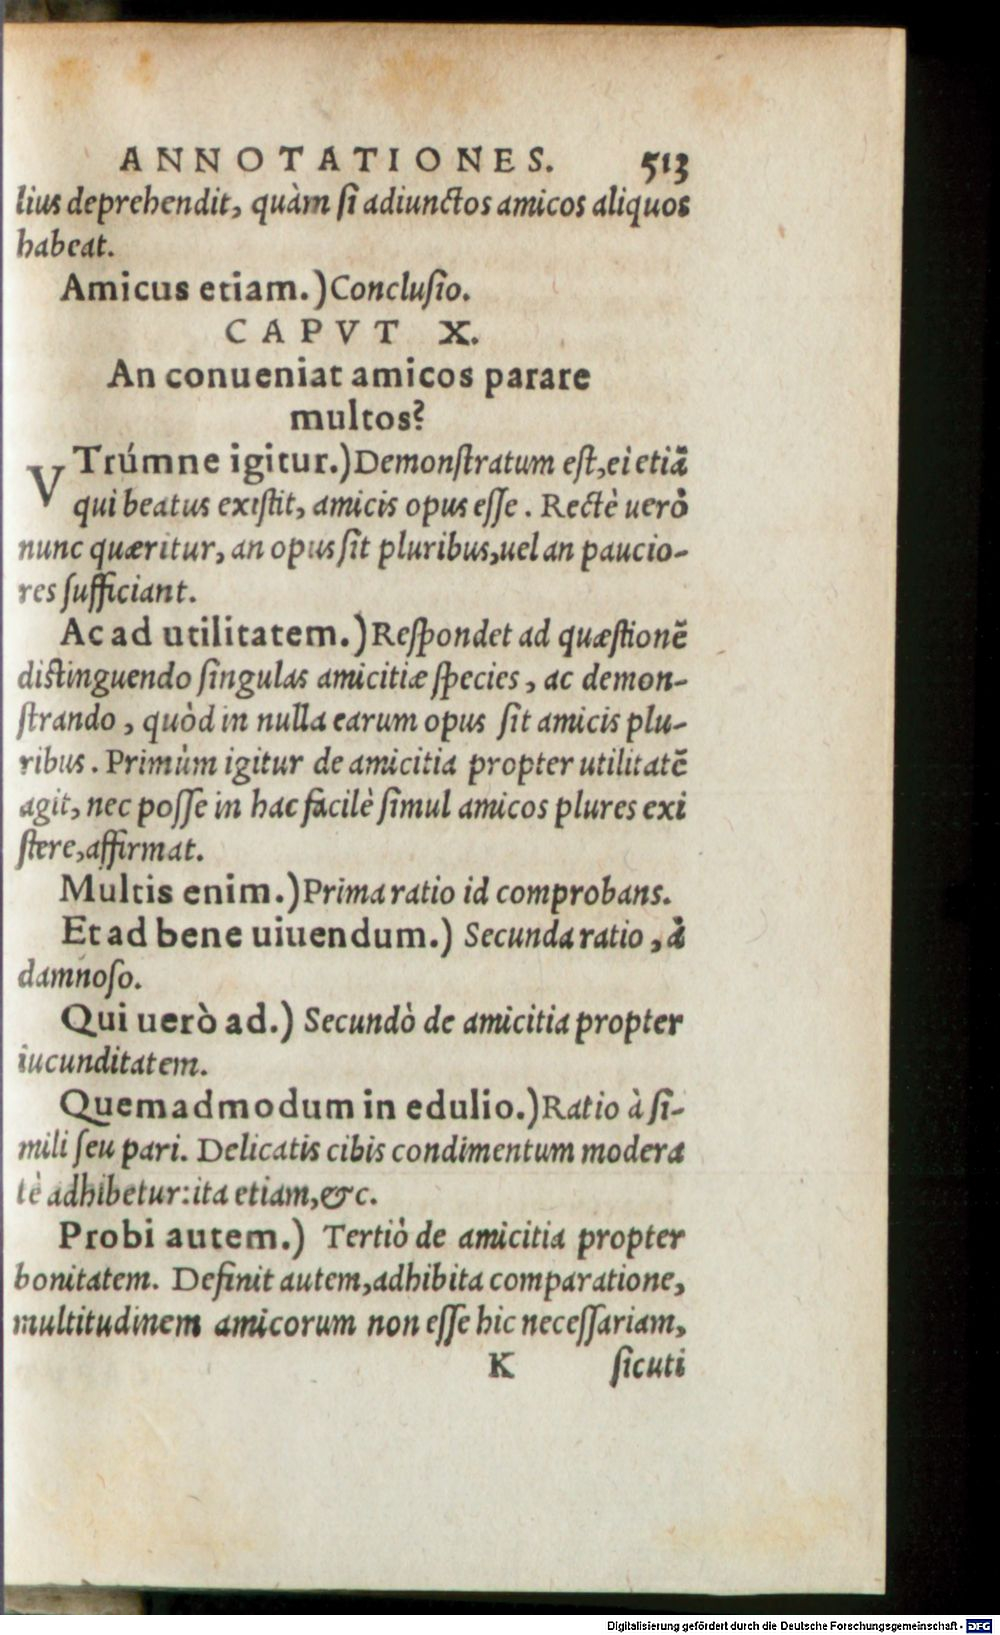 ANNOTATIONES. 513
lius deprehendit, quàm ſi adiunctos amicos aliquos
habeat.
Amicus etiam.) Concluſio.
CAPVT X.
An conueniat amicos parare
multos?
VTrúmne igitur.) Demonſtratum eſt, ei etiã
qui beatus exiſtit, amicis opus eſſe. Rectè uerò
nunc quæritur, an opus ſit pluribus, uel an paucio-
res ſufficiant.
Ac ad utilitatem.) Reſpondet ad quæſtionẽ
diſtinguendo ſingulas amicitiæ ſpecies, ac demon-
ſtrando, quòd in nulla earum opus ſit amicis plu-
ribus. Primùm igitur de amicitia propter utilitatẽ
agit, nec poſſe in hac facilè ſimul amicos plures exi
ſtere, affirmat.
Multis enim.) Prima ratio id comprobans.
Et ad bene uiuendum.) Secunda ratio, à
damnoſo.
Qui uerò ad.) Secundò de amicitia propter
iucunditatem.
Quemadmodum in edulio.) Ratio à ſi-
mili ſeu pari. Delicatis cibis condimentum modera
tè adhibetur: ita etiam, &c.
Probi autem.) Tertiò de amicitia propter
bonitatem. Definit autem, adhibita comparatione,
multitudinem amicorum non eſſe hic neceſſariam,
K ſicuti
Digitalisierung gefördert durch die Deutsche Forschungsgemeinschaft - DFG